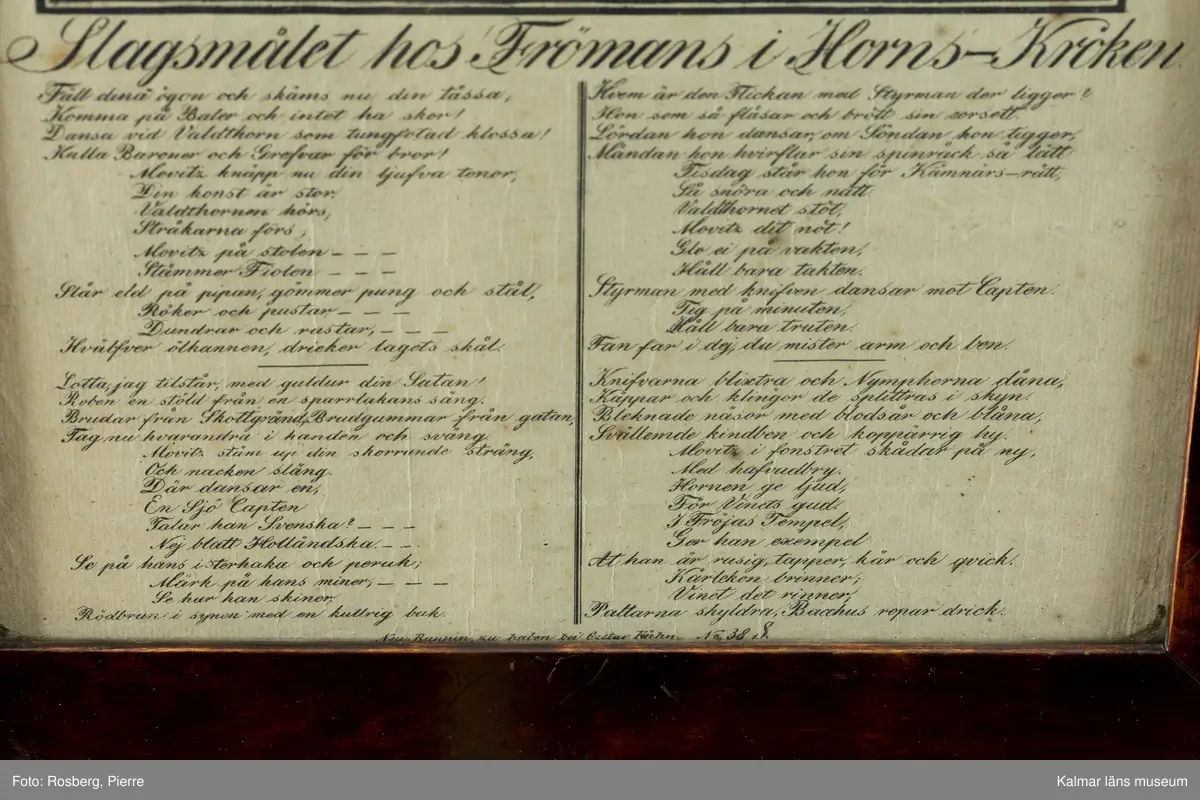 Slagsmålet hos Frömans i Horns-Kröken
Fäll dina ögon och skäms nu din tåssa,
Komma på Baler och intet ha skor!
Dansa vid Valdthorn som tungfotad klossa!
Kalla Baroner och Grefvar för bror!
Movitz knäpp nu din ljufva tenor,
Din konst är stor.
Valdthornen hörs,
Stråkarna förs,
Movitz på stolen – – –
Stämmer Fiolen – – –
Slår eld på pipan, gömmer pung och stål,
Röker och pustar – – –
Dundrar och rustar, – – –
Hvälfver ölkannen, dricker lagets skål.
Lotta, jag tilstår, med guldur din Satan!
Roben en stöld från en sparrlakans säng.
Brudar från Skottgränd, Brudgummar från gatan,
Tag nu hvarandra i handen och sväng.
Movitz stäm up din skorrande sträng,
Och nacken släng.
Där dansar en,
En Sjö Capten
Talar han Svenska? – – –
Nej blatt Holländska. – –
Se på hans isterhaka och peruk;
Märk på hans miner, – – –
Se hur han skiner,
Rödbrun i synen med en kullrig buk.
Hvem är den Flickan med Styrman der ligger?
Hon som så flåsar och brött sin corsett.
Lördan hon dansar, om Söndan hon tigger,
Måndan hon hvirflar sin spinräck så lätt
Tisdag står hon för Kämnärs-rätt,
Så snöra och nätt.
Valdthornet stöt,
Movitz dit nöt!
Glo ei på vakten,
Håll bara takten.
Styrman med knifven dansar mot Capten.
Tig på minuten,
Håll bara truten.
Fan far i dej, du mister arm och ben.
Knifvarna blixtra och Nympherna dåna,
Käppar och klingor de splittras i skyn.
Bleknade näsor med blodsår och blåna,
Svullemde kindben och koppärrig hy.
Movitz i fonstret skådar på ny,
Med hufvudbry.
Hornen ge ljud,
För Vinets gud.
I Fröjas Tempel,
Ger han exempel
At han är rusig, tapper, kär och qvick.
Kärleken brinner,
Vinet det rinner,
Paltarna skyldra, Bacchus ropar drick.
Neu Ruppin, zu haben bei Gustav Kühn. No. 38 8.
Foto: Rosberg, Pierre
Kalmar läns museum